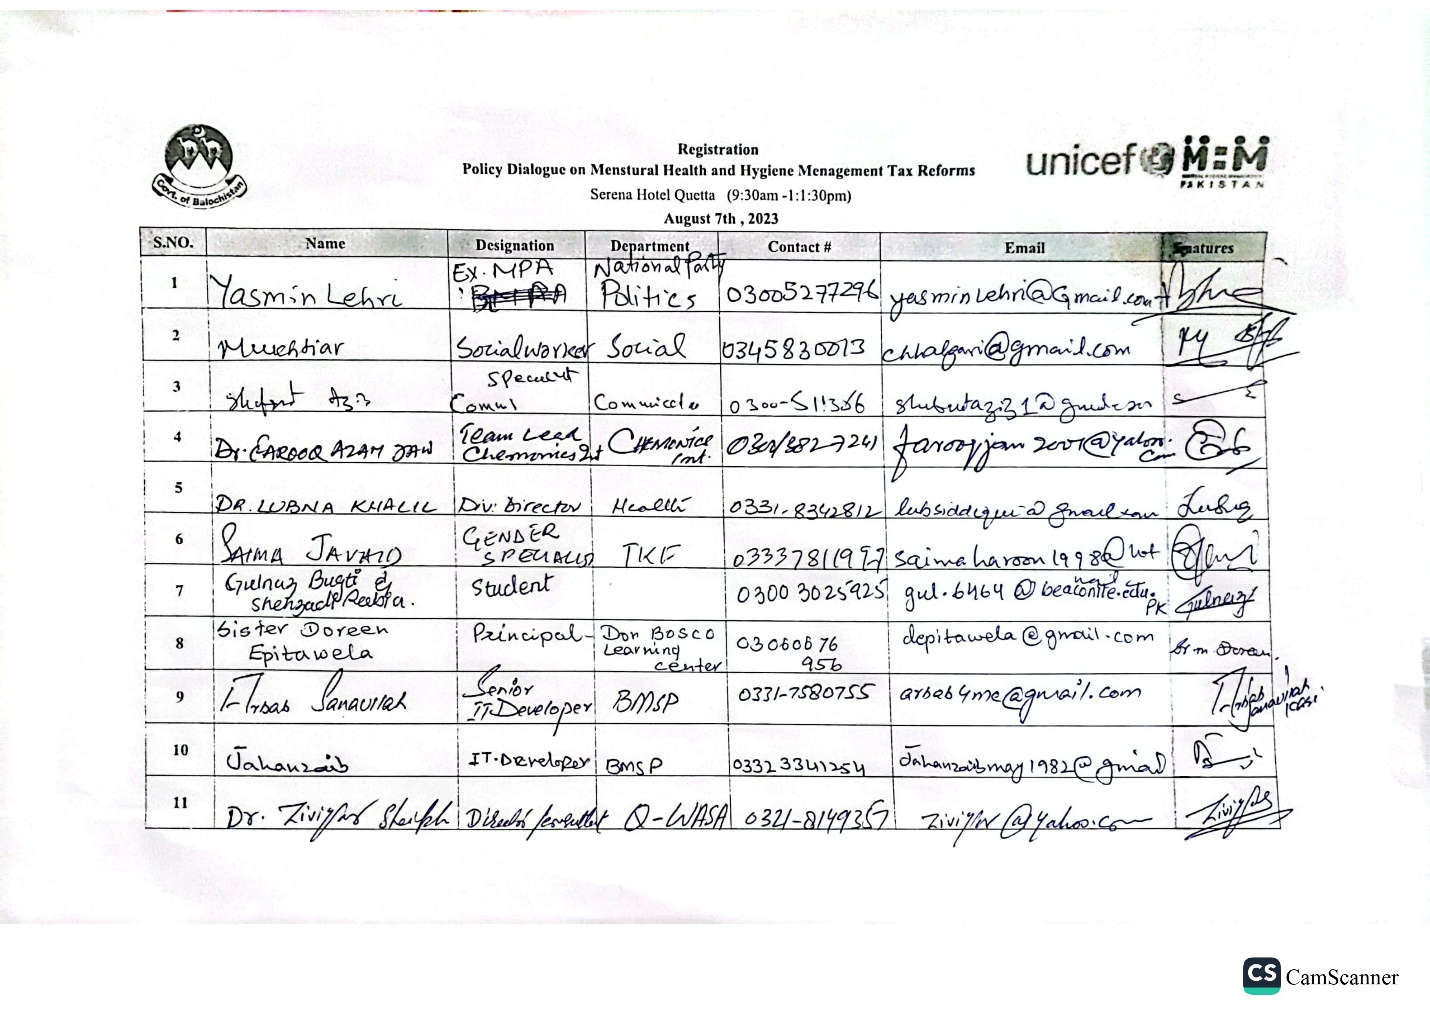 Govt. of Balochistan
unicef MHM
PAKISTAN
Registration
Policy Dialogue on Menstural Health and Hygiene Menagement Tax Reforms
Serena Hotel Quetta (9:30am -1:1:30pm)
August 7th , 2023
S.NO. Name Designation Department Contact # Email
1 Yasmin Lehri Ex. MPA National Party Politics 03005277296 yasminlehri@Gmail.com
2 Social worker Social 0345830013 @gmail.com
3 Specialist
4 Dr. FAROOQ AZAM JAN Team Lead Chemonics Int CHEMONICS Int. farooqjan2001@yahoo.com
5 DR. LUBNA KHALIL Div: Director Health 0331-8342812 lubsiddiqui@gmail.com
6 SAIMA JAVAID GENDER SPECIALIS TKF 03337811997 saimaharoon1998@hot
7 Gulnaz Bugti & Shehzadi Student 0300 3025925 gul.6464@beaconite.edu.PK Gulnaz
8 Sister Doreen Epitawela Principal- Don BOSCO Learning center 03060676 956 depitawela@gmail.com
9 Arbab Sanaullah Senior IT Developer BMSP 0331-7580755 arbab4me@gmail.com
10 Jahanzaib IT-Developer BMSP 03323341254 Jahanzaibmay1982@gmail
11 Dr. Sheikh Director Q-WASA 0321-8149357 @yahoo.com
CS CamScanner